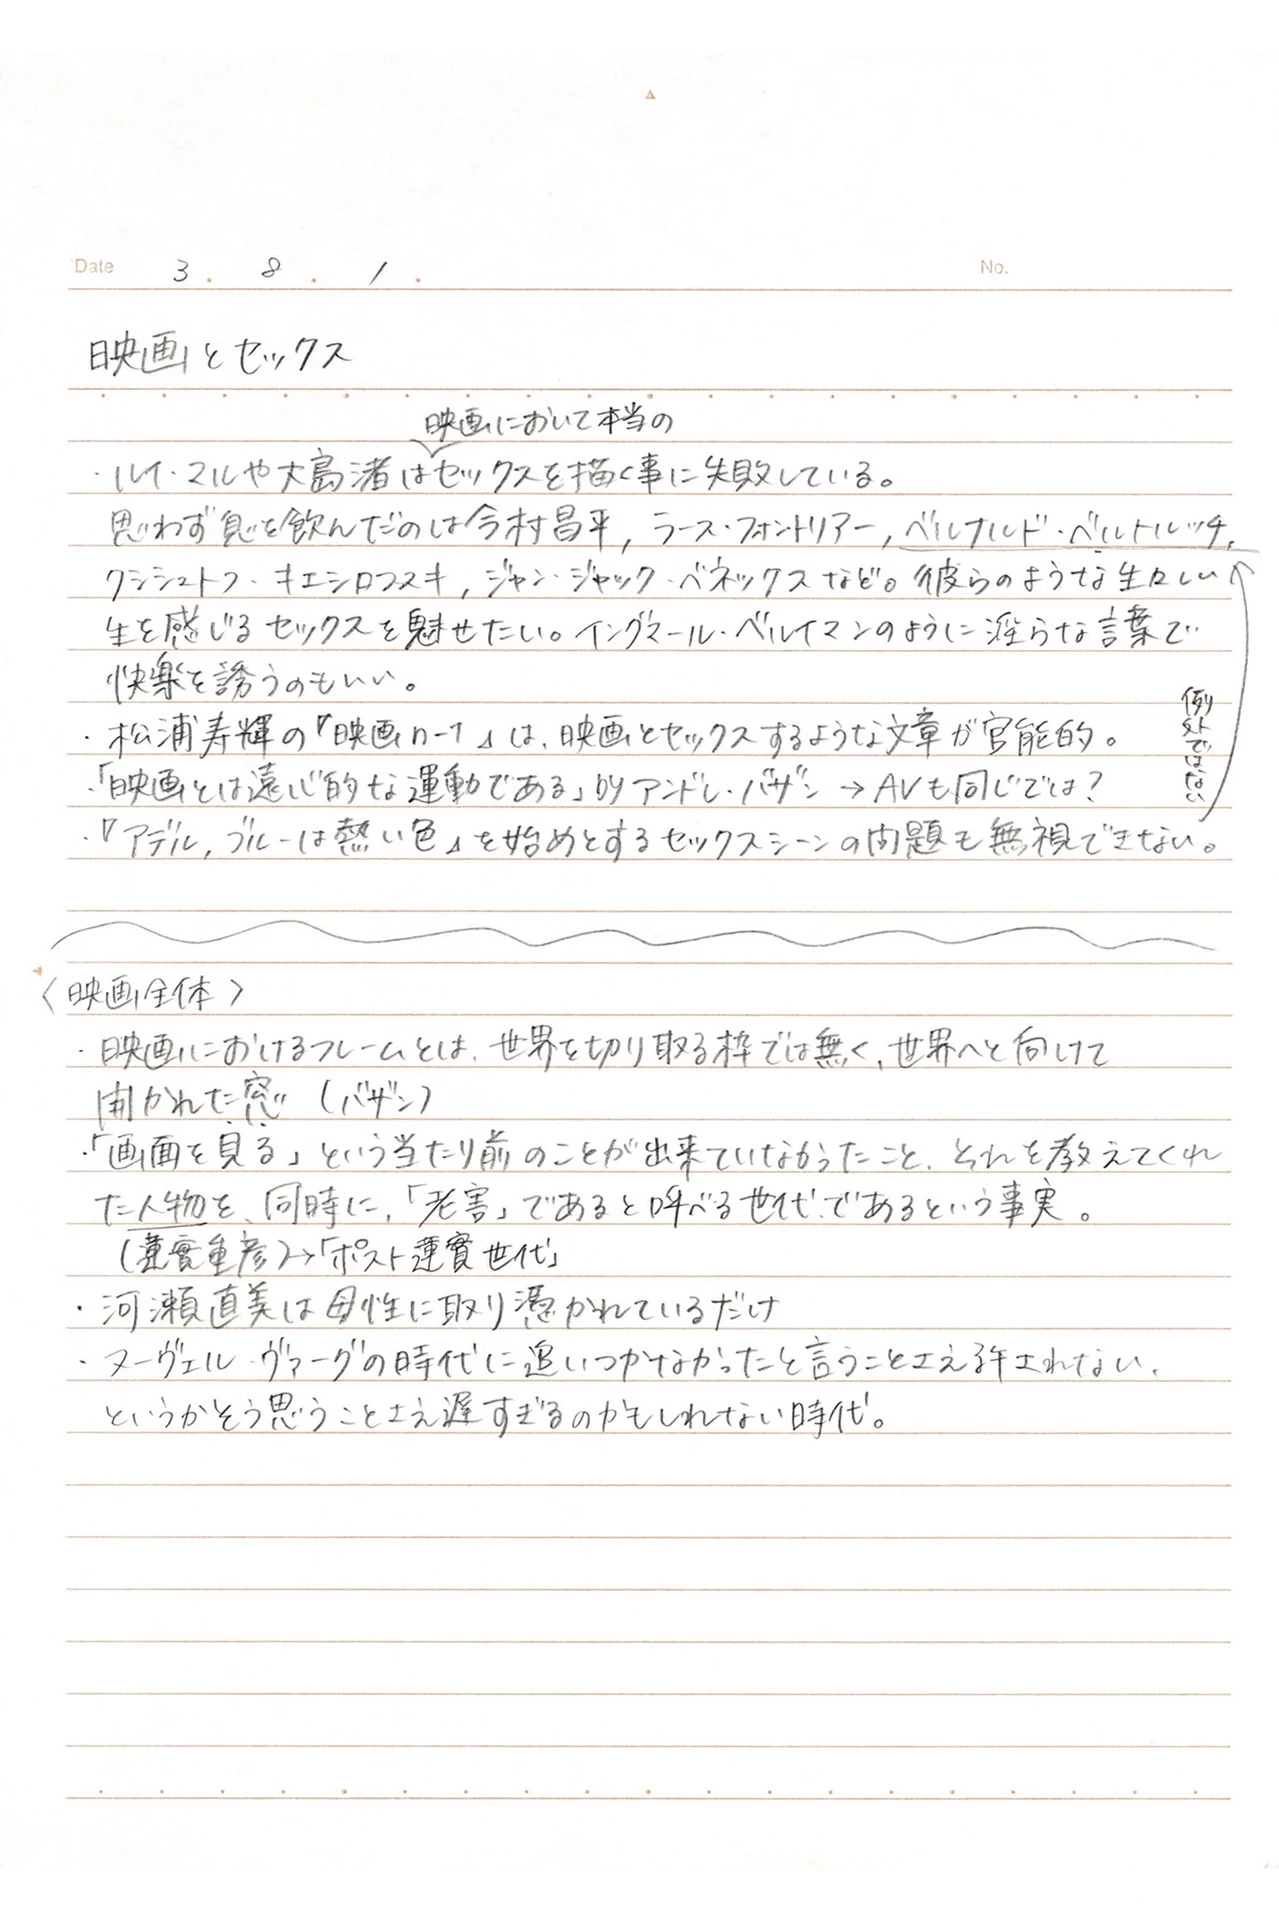 Date 3. 8. 1. No.
映画とセックス
映画において本当の
・ルイ・マルや大島渚はセックスを描く事に失敗している。
思わず息を飲んだのは今村昌平, ラース・フォントリアー, ベルナルド・ベルトルッチ,
クシシュトフ・キエシロフスキ, ジャン・ジャック・ベネックスなど。彼らのような生々しい
生を感じるセックスを魅せたい。イングマール・ベルイマンのように淫らな言葉で
快楽を誘うのもいい。
例外ではない
・松浦寿輝の『映画n-1』は、映画とセックスするような文章が官能的。
・「映画とは遠心的な運動である」byアンドレ・バザン → AVも同じでは?
・『アデル, ブルーは熱い色』を始めとするセックスシーンの問題も無視できない。
〈映画全体〉
・映画におけるフレームとは、世界を切り取る枠では無く、世界へと向けて
開かれた窓 (バザン)
・「画面を見る」という当たり前のことが出来ていなかったこと、それを教えてくれ
た人物を、同時に、「老害」であると呼べる世代であるという事実。
(蓮實重彦)→「ポスト蓮實世代」
・河瀬直美は母性に取り憑かれているだけ
・ヌーヴェル・ヴァーグの時代に追いつかなかったと言うことさえ許されない、
というかそう思うことさえ遅すぎるのかもしれない時代。